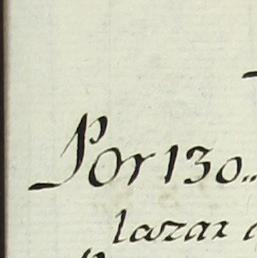 Por 130..
lazar